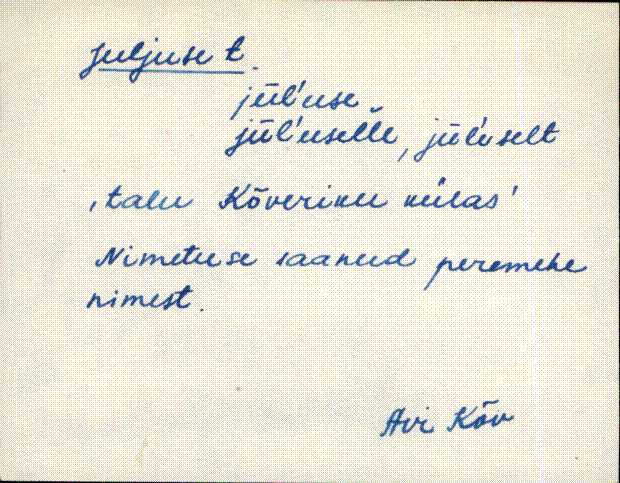 Juljuse t.
jül'use
jül'uselle, jül'uselt
'talu Kõveriku külas'
Nimetuse saanud peremehe
nimest.
Avi Kõv